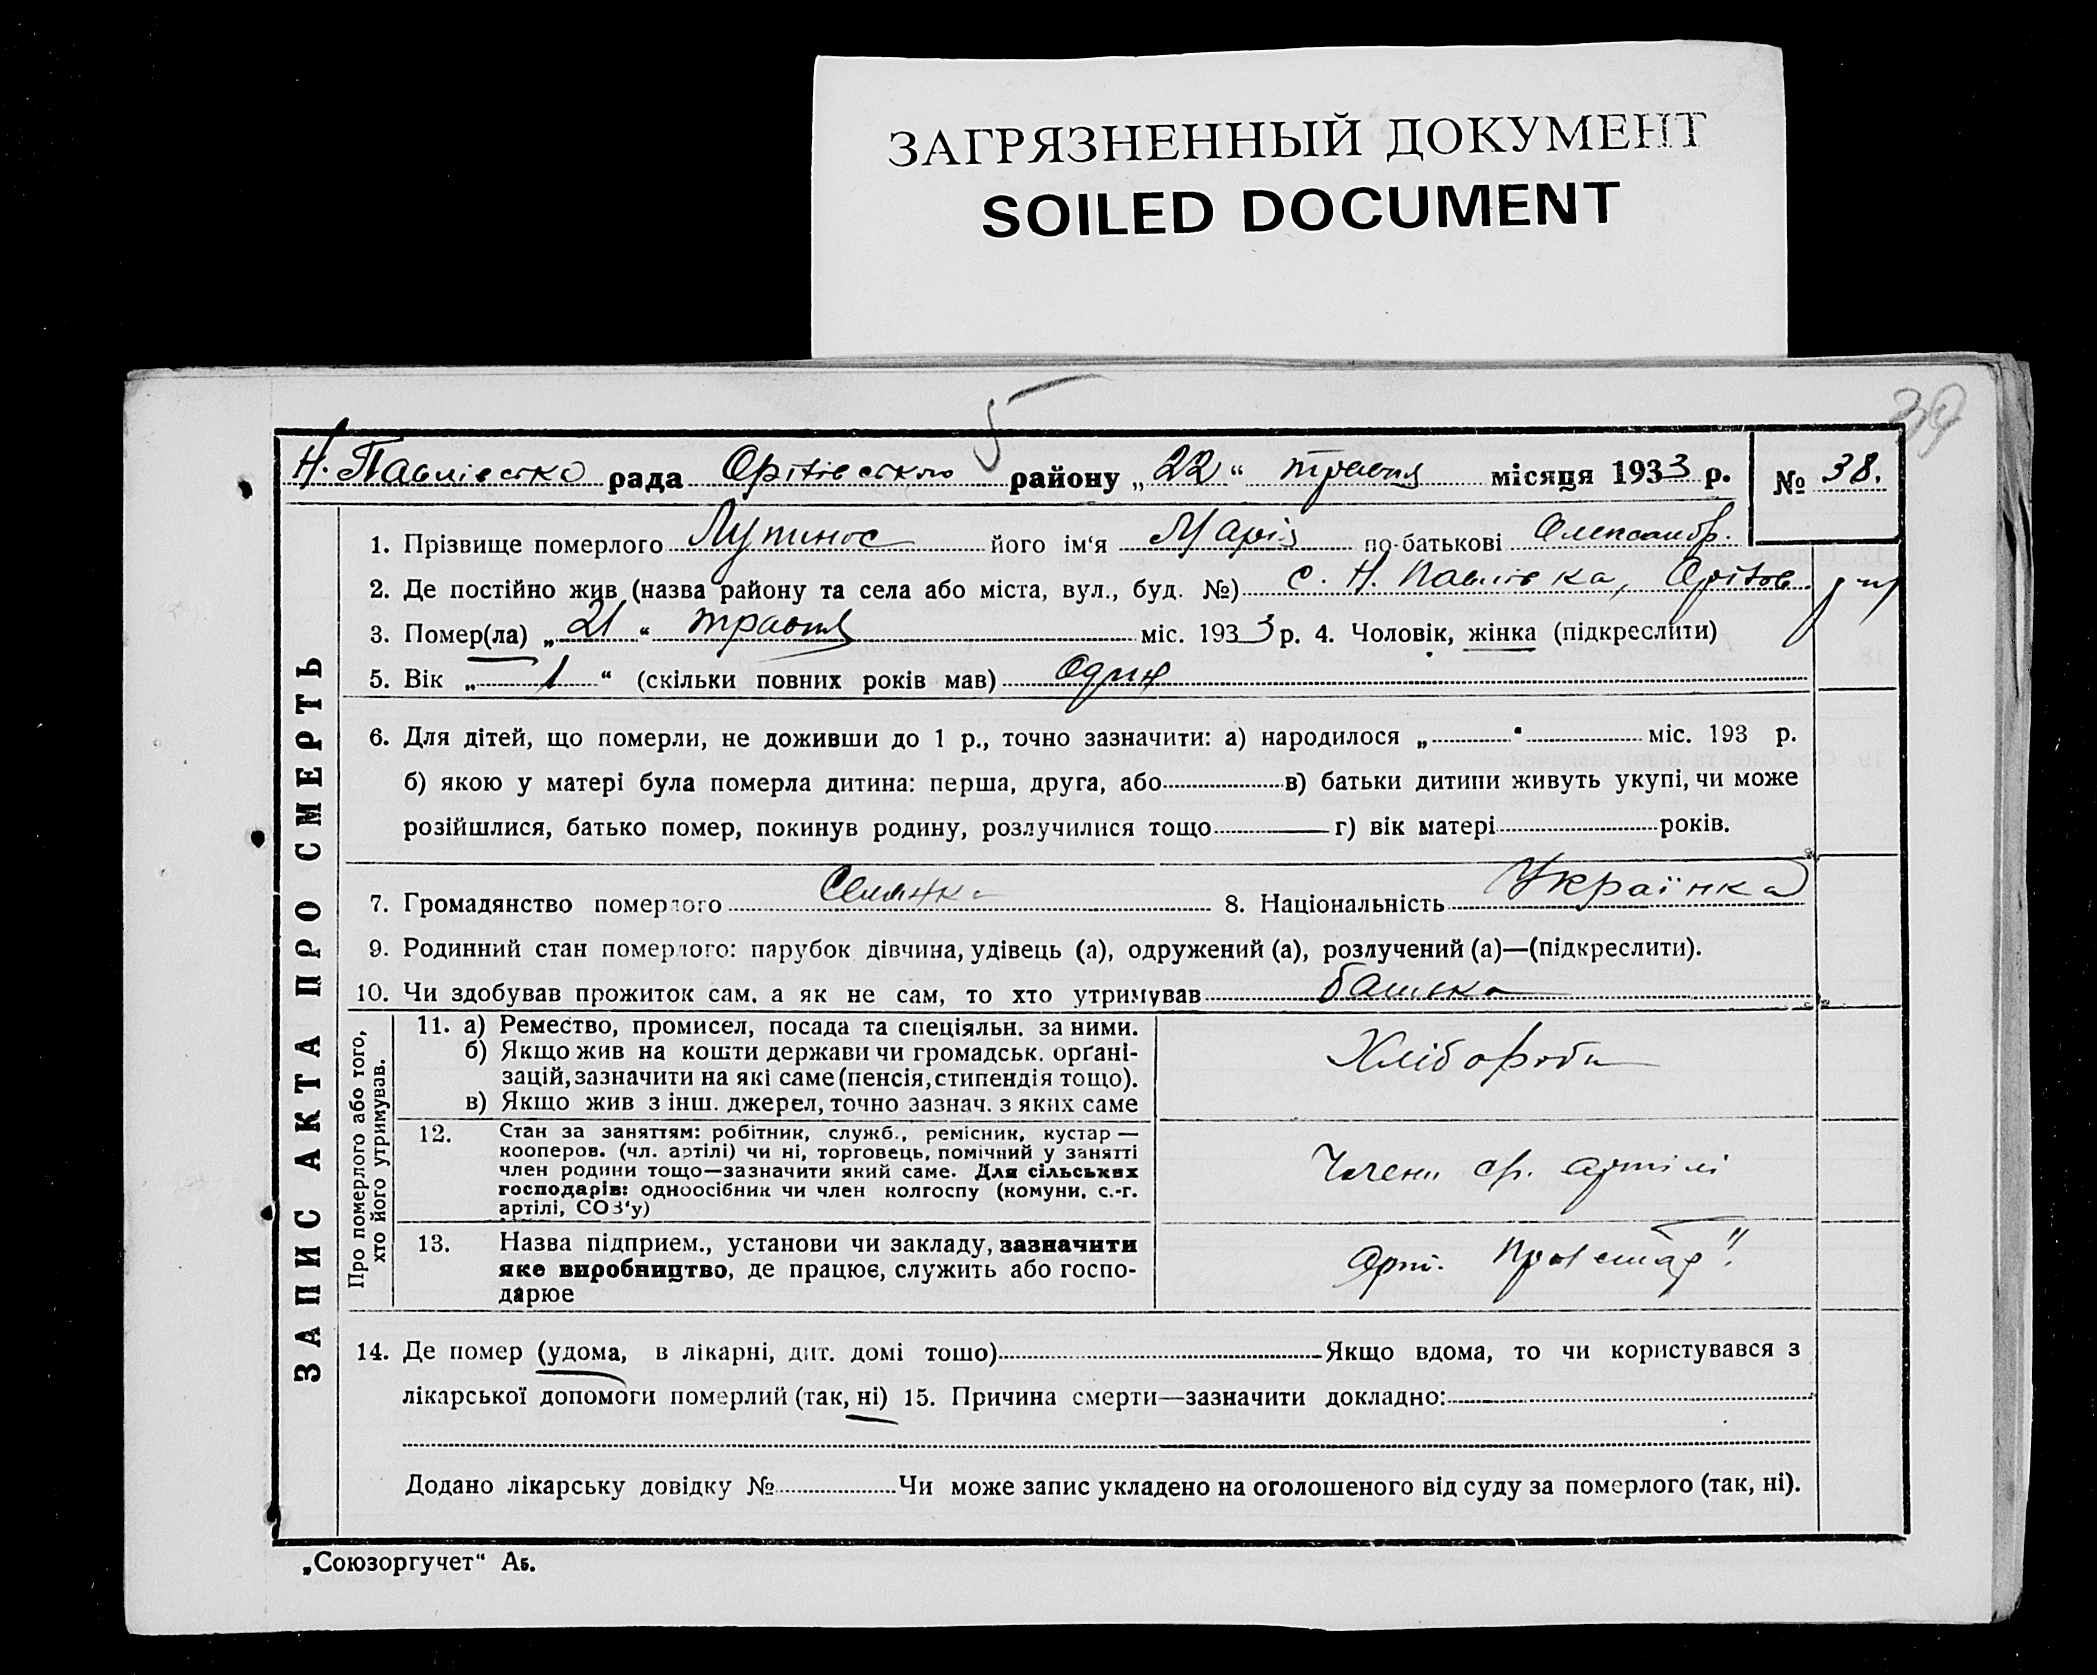 ЗАГРЯЗНЕННЫЙ ДОКУМЕНТ
SOILED DOCUMENT
5
39
Н. Павлівсько рада Оріхівського району „22“ травня місяця 1933 р. № 38.
ЗАПИС АКТА ПРО СМЕРТЬ
1. Прізвище померлого Лупинос його ім‘я Марія по-батькові Олександр.
2. Де постійно жив (назва району та села або міста, вул., буд. №) с. Н. Павлівка, Оріхов. р-ну
3. Помер(ла) „21“ травня міс. 1933 р. 4. Чоловік, жінка (підкреслити)
5. Вік „1“ (скільки повних років мав) Один
6. Для дітей, що померли, не доживши до 1 р., точно зазначити: а) народилося „ “ міс. 193 р.
б) якою у матері була померла дитина: перша, друга, або в) батьки дитини живуть укупі, чи може
розійшлися, батько помер, покинув родину, розлучилися тощо г) вік матері років.
7. Громадянство померлого Селянка 8. Національність Українка
9. Родинний стан померлого: парубок дівчина, удівець (а), одружений (а), розлучений (а)—(підкреслити).
10. Чи здобував прожиток сам. а як не сам, то хто утримував батько
Про померлого або того,
хто його утримував.
11. а) Ремество, промисел, посада та спеціяльн. за ними.
б) Якщо жив на кошти держави чи громадськ. орґані-
зацій, зазначити на які саме (пенсія, стипендія тощо).
в) Якщо жив з інш. джерел, точно зазнач. з яких саме
Хлібороби
12. Стан за заняттям: робітник, служб., ремісник, кустар —
кооперов. (чл. артілі) чи ні, торговець, помічний у занятті
член родини тощо—зазначити який саме. Для сільських
господарів: одноосібник чи член колгоспу (комуни, с.-г.
артілі, СОЗ‘у)
Члени ср. артілі
13. Назва підприєм., установи чи закладу, зазначити
яке виробництво, де працює, служить або госпо-
дарює
Арт. Пролетар"
14. Де помер (удома, в лікарні, дит. домі тощо) Якщо вдома, то чи користувався з
лікарської допомоги померлий (так, ні) 15. Причина смерти—зазначити докладно:
Додано лікарську довідку № Чи може запис укладено на оголошеного від суду за померлого (так, ні).
„Союзоргучет“ Аб.